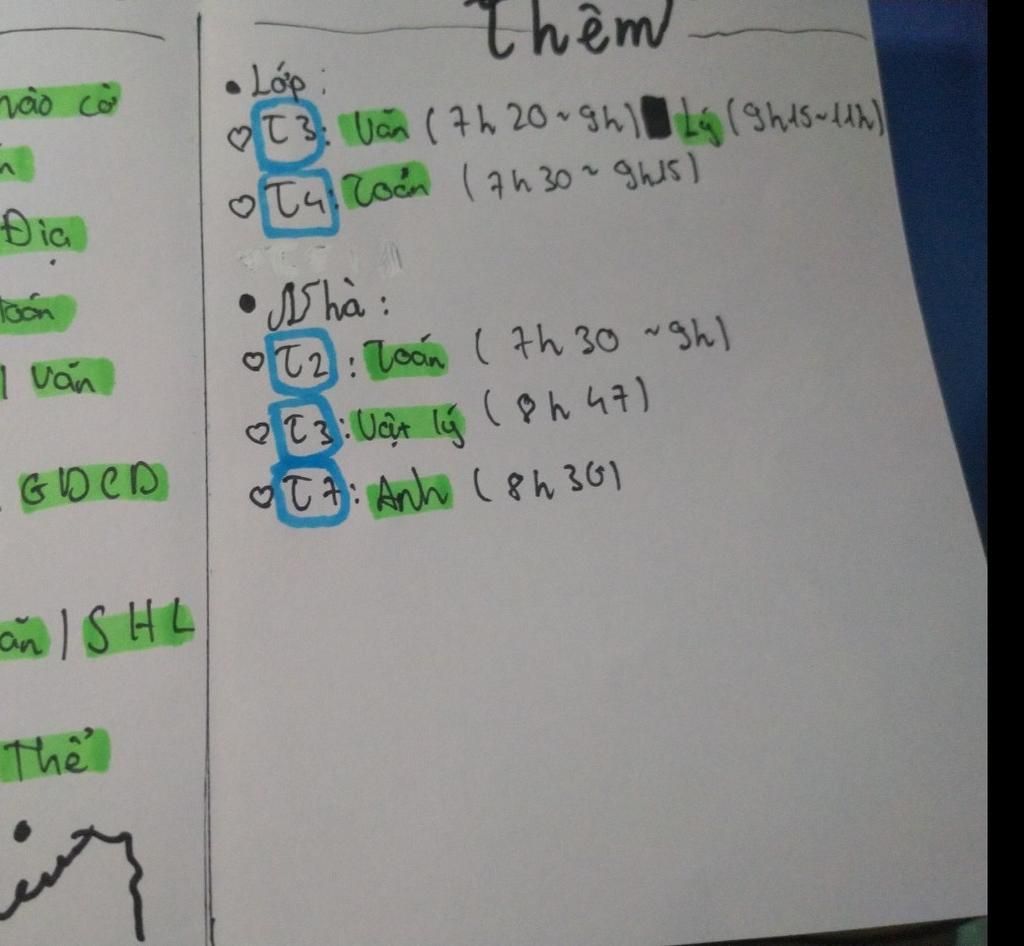 Thêm
• Lớp:
♡ T3: Văn (7h20 ~ 9h) Lý (9h15 ~ 11h)
♡ T4: Toán (7h30 ~ 9h15)
• Nhà:
♡ T2: Toán (7h30 ~ 9h)
♡ T3: Vật lý (8h47)
♡ T7: Anh (8h30)
hào cờ
Địa
Toán
| Văn
GDCD
ăn | SHL
Thể